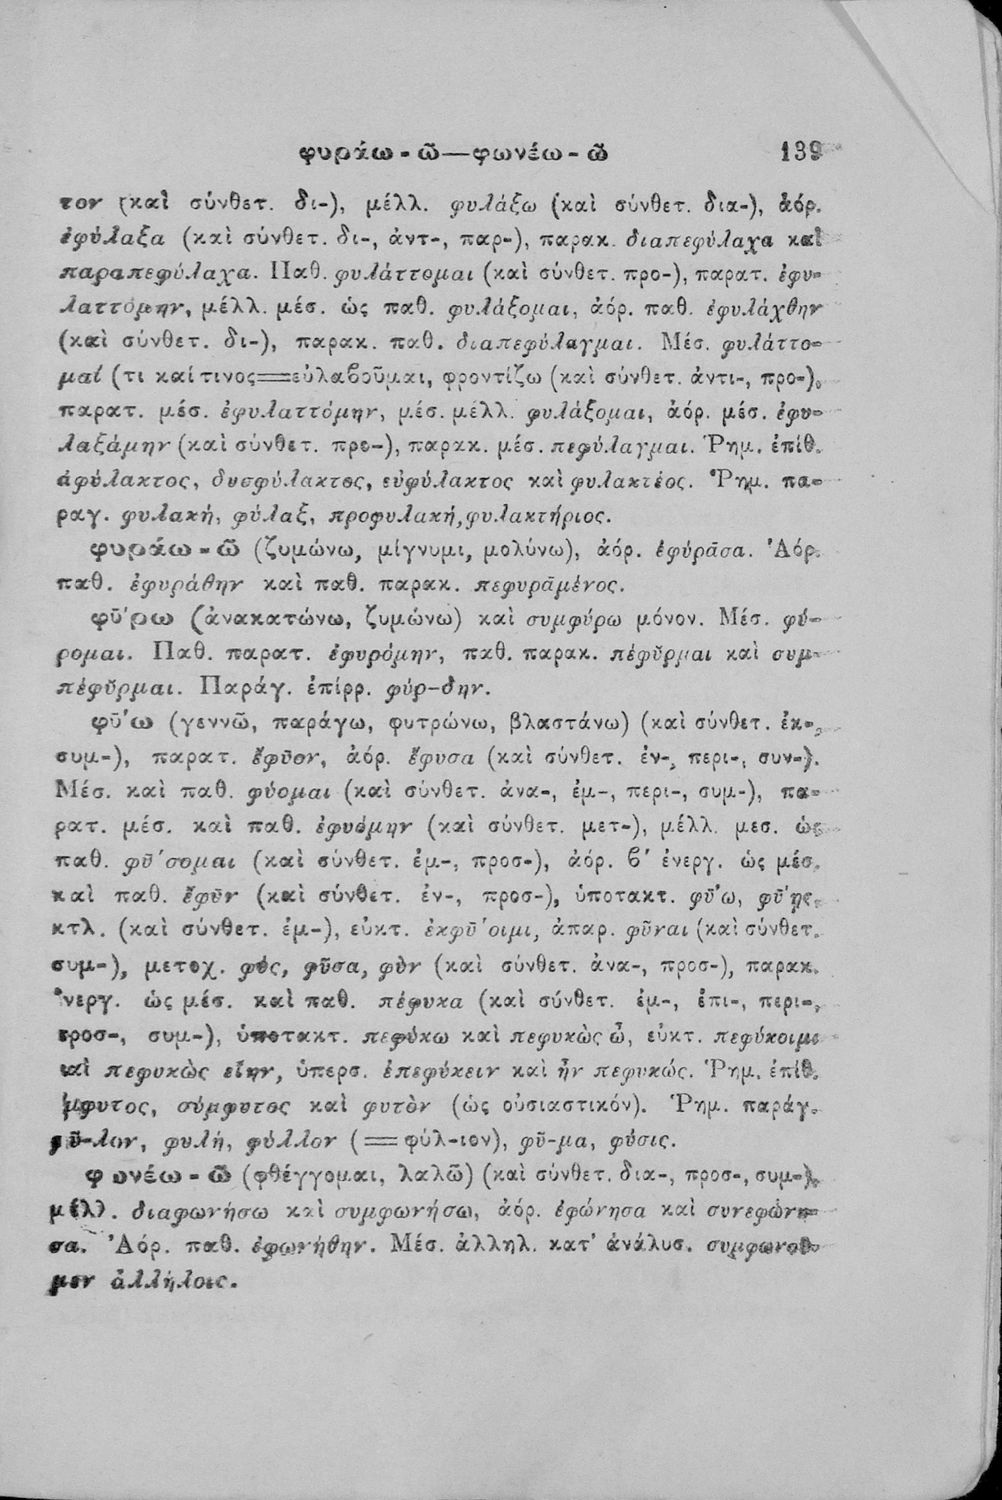 φυράω - ῶ—φωνέω - ῶ 139
τον (καὶ σύνθετ. δι-), μέλλ. φυλάξω (καὶ σύνθετ. δια-), ἀόρ.
ἐφύλαξα (καὶ σύνθετ. δι-, ἀντ-, παρ-), παρακ. διαπεφύλαχα καὶ
παραπεφύλαχα. Παθ. φυλάττομαι (καὶ σύνθετ. προ-), παρατ. ἐφυ-
λαττόμην, μέλλ. μέσ. ὡς παθ. φυλάξομαι, ἀόρ. παθ. ἐφυλάχθην
(καὶ σύνθετ. δι-), παρακ. παθ. διαπεφύλαγμαι. Μέσ. φυλάττο-
μαί (τι καί τινος==εὐλαβοῦμαι, φροντίζω (καὶ σύνθετ. ἀντι-, προ-),
παρατ. μέσ. ἐφυλαττόμην, μέσ. μέλλ. φυλάξομαι, ἀόρ. μέσ. ἐφυ-
λαξάμην (καὶ σύνθετ. προ-), παρακ. μέσ. πεφύλαγμαι. Ῥημ. ἐπίθ.
ἀφύλακτος, δυσφύλακτος, εὐφύλακτος καὶ φυλακτέος. Ῥημ. πα-
ραγ. φυλακή, φύλαξ, προφυλακή, φυλακτήριος.
φυράω - ῶ (ζυμώνω, μίγνυμι, μολύνω), ἀόρ. ἐφύρᾱσα. Ἀόρ.
παθ. ἐφυράθην καὶ παθ. παρακ. πεφυρᾱμένος.
φῡ́ρω (ἀνακατώνω, ζυμώνω) καὶ συμφύρω μόνον. Μέσ. φύ-
ρομαι. Παθ. παρατ. ἐφυρόμην, παθ. παρακ. πέφῡρμαι καὶ συμ-
πέφῡρμαι. Παράγ. ἐπίρρ. φύρ-δην.
φῡ́ω (γεννῶ, παράγω, φυτρώνω, βλαστάνω) (καὶ σύνθετ. ἐκ-,
συμ-), παρατ. ἔφῡον, ἀόρ. ἔφυσα (καὶ σύνθετ. ἐν-, περι-, συν-).
Μέσ. καὶ παθ. φύομαι (καὶ σύνθετ. ἀνα-, ἐμ-, περι-, συμ-), πα-
ρατ. μέσ. καὶ παθ. ἐφυόμην (καὶ σύνθετ. μετ-), μέλλ. μεσ. ὡς
παθ. φῡ́σομαι (καὶ σύνθετ. ἐμ-, προσ-), ἀόρ. β΄ ἐνεργ. ὡς μέσ.
καὶ παθ. ἔφῡν (καὶ σύνθετ. ἐν-, προσ-), ὑποτακτ. φῡ́ω, φῡ́ῃς,
κτλ. (καὶ σύνθετ. ἐμ-), εὐκτ. ἐκφῡ́οιμι, ἀπαρ. φῦναι (καὶ σύνθετ.
συμ-), μετοχ. φύς, φῦσα, φὺν (καὶ σύνθετ. ἀνα-, προσ-), παρακ.
ἐνεργ. ὡς μέσ. καὶ παθ. πέφυκα (καὶ σύνθετ. ἐμ-, ἐπι-, περι-,
προσ-, συμ-), ὑποτακτ. πεφύκω καὶ πεφυκὼς ὦ, εὐκτ. πεφύκοιμι
καὶ πεφυκὼς εἴην, ὑπερσ. ἐπεφύκειν καὶ ἦν πεφυκώς. Ῥημ. ἐπίθ.
ἔμφυτος, σύμφυτος καὶ φυτὸν (ὡς οὐσιαστικόν). Ῥημ. παράγ.
φῦ-λον, φυλή, φύλλον (==φύλ-ιον), φῦ-μα, φύσις.
φωνέω - ῶ (φθέγγομαι, λαλῶ) (καὶ σύνθετ. δια-, προσ-, συμ-),
μέλλ. διαφωνήσω καὶ συμφωνήσω, ἀόρ. ἐφώνησα καὶ συνεφώνη-
σα. Ἀόρ. παθ. ἐφωνήθην. Μέσ. ἀλληλ. κατ' ἀνάλυσ. συμφωνοῦ-
μεν ἀλλήλοις.